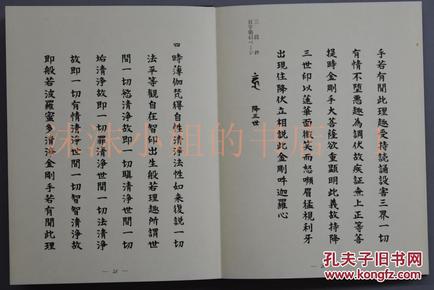 手若有聞此理趣受持讀誦設害三界一切
有情不墮惡趣為調伏故疾証無上正等菩
提時金剛手大菩薩欲重顯明此義故持降
三世印以蓮華面微笑而怒嚬眉猛視利牙
出現住降伏立相說此金剛吽迦羅心
降三世
四時薄伽梵得自性清淨法性如來復說一切
法平等觀自在智印出生般若理趣所謂世
間一切慾清淨故即一切瞋清淨世間一切
垢清淨故即一切罪清淨世間一切法清淨
故即一切有情清淨世間一切智智清淨故
即般若波羅蜜多清淨金剛手若有聞此理
孔夫子旧书网